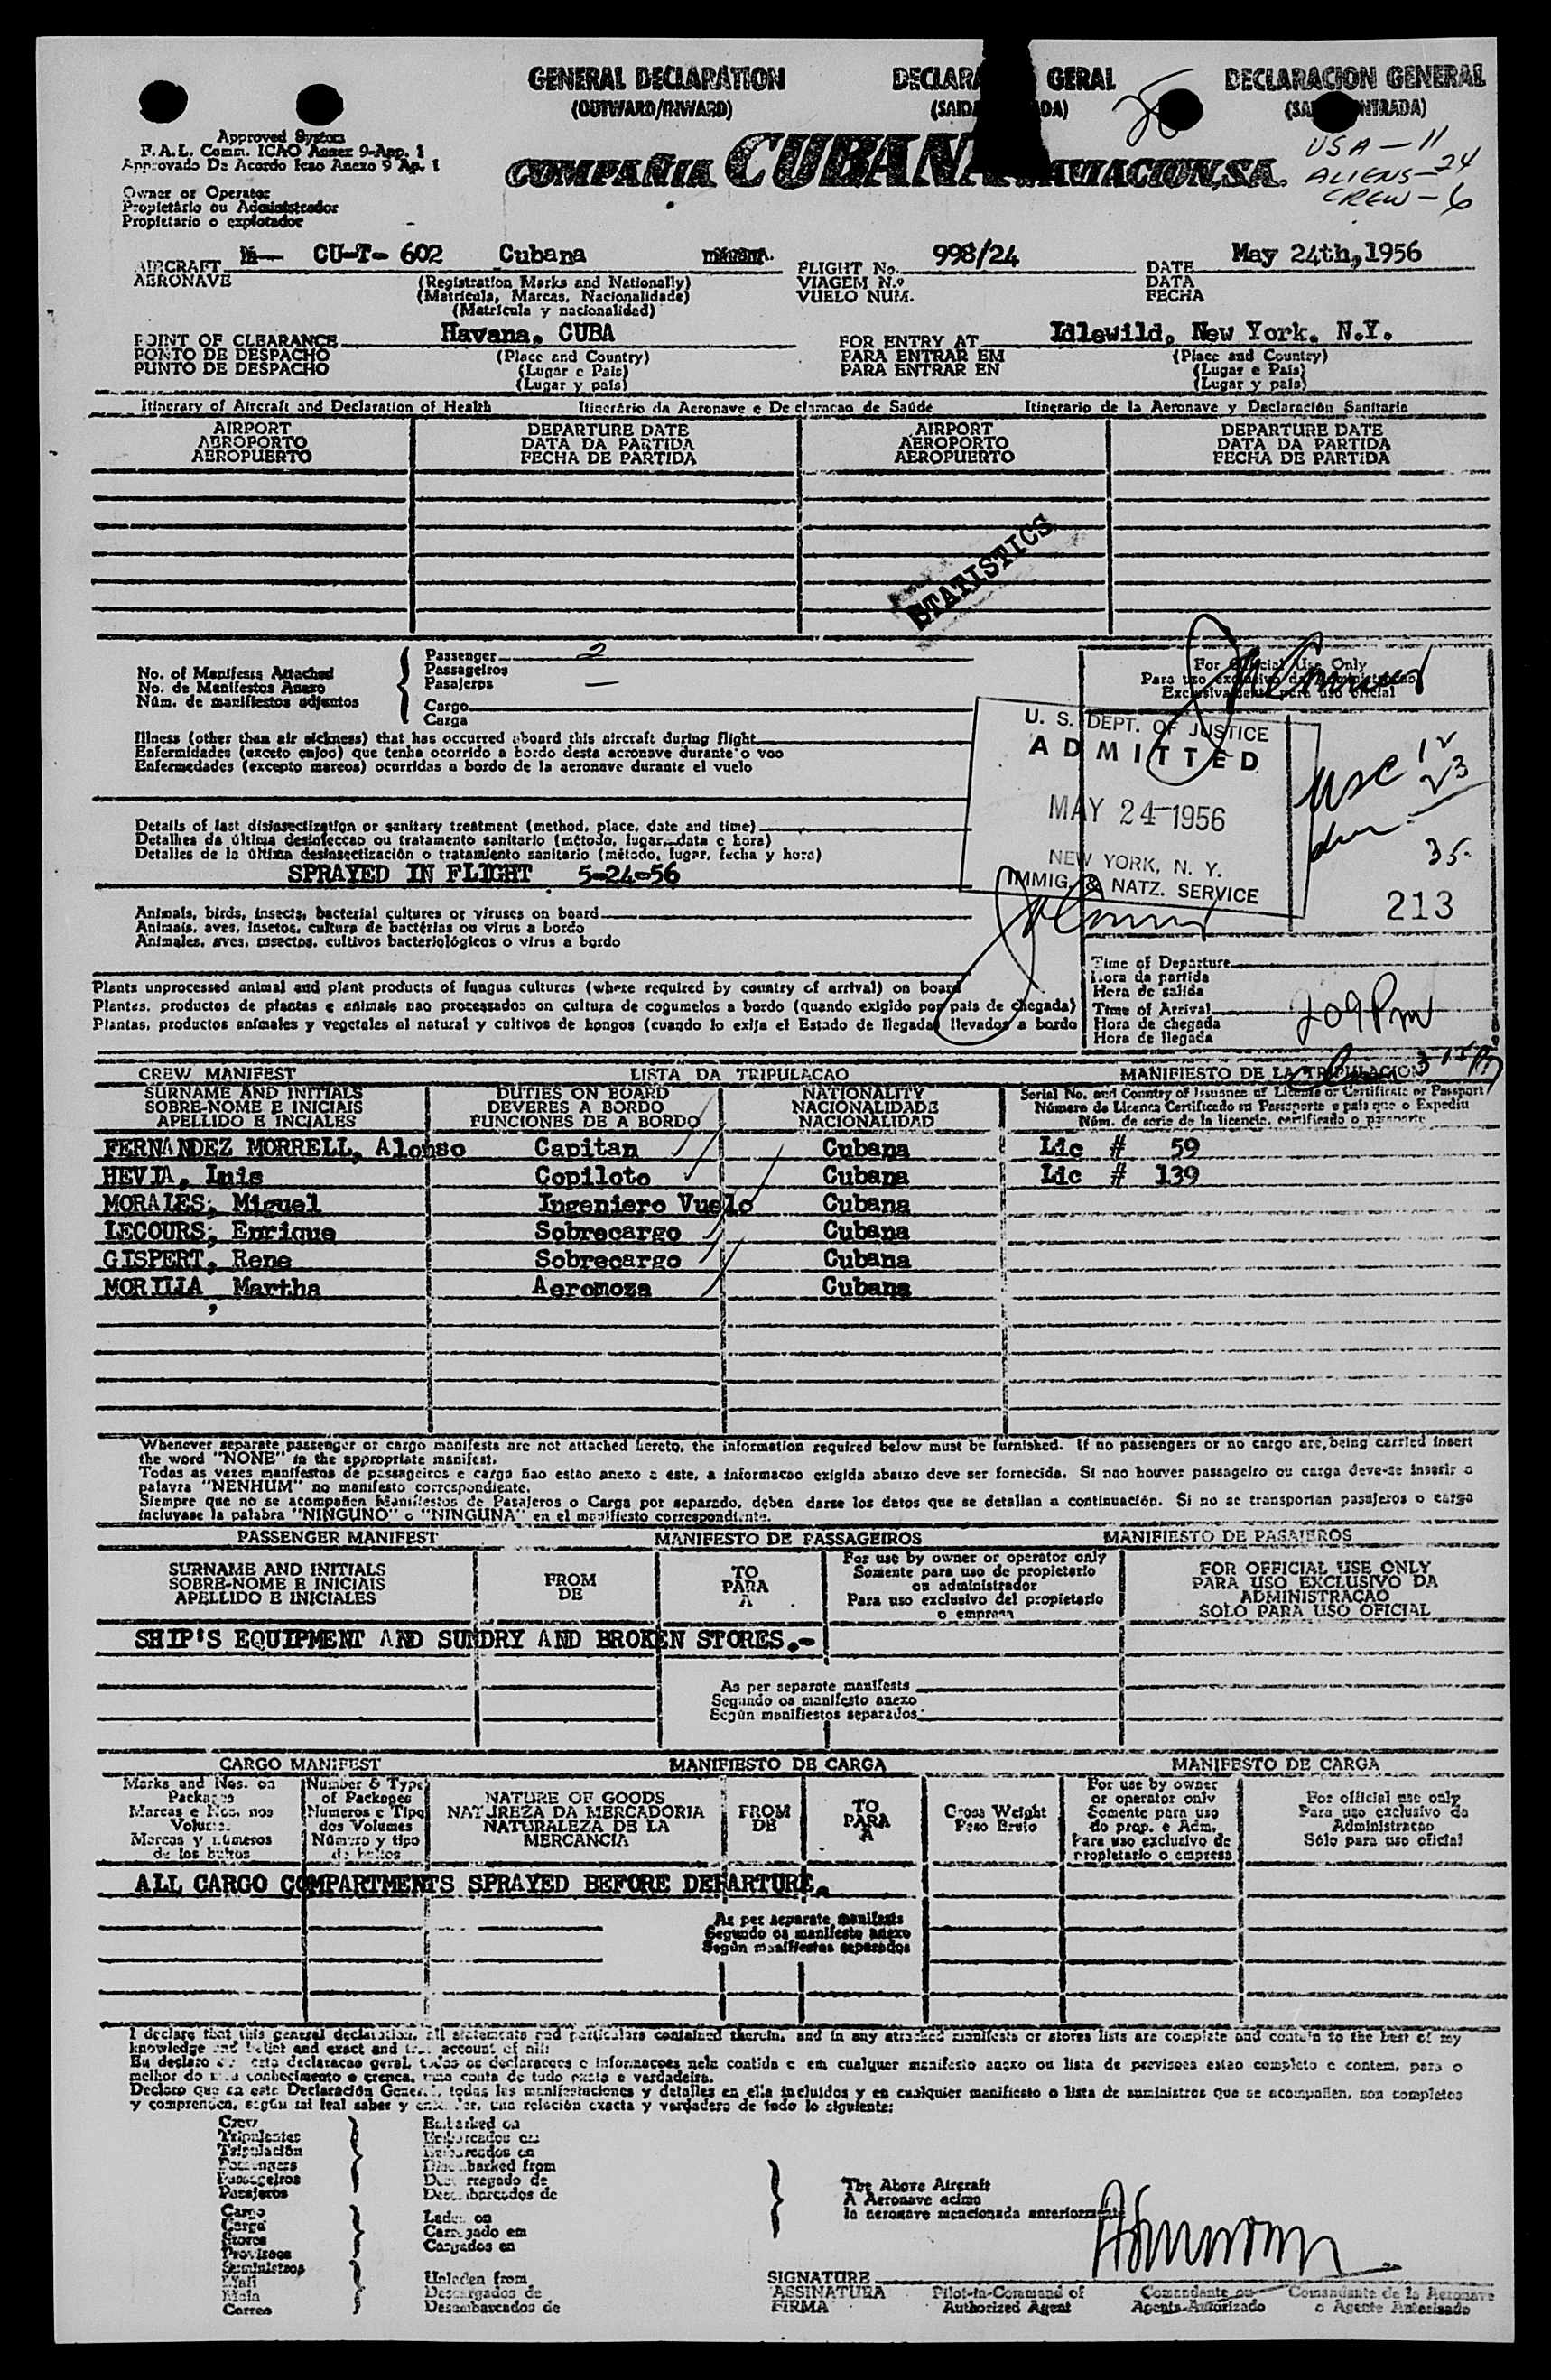 GENERAL DECLARATION
(OUTWARD/INWARD)
DECLARA GERAL
(SAIDA DA)
DECLARACION GENERAL
(SA NTRADA)
Approved System
F.A.L. Comm. ICAO Annex 9-App. 1
Approvado De Acordo Icao Anexo 9 Ap. 1
USA - 11
ALIENS - 24
CREW - 6
COMPAÑIA CUBANA AVIACION, S.A.
Owner or Operator
Propietário ou Administrador
Propietario o explotador
AIRCRAFT CU-T- 602 Cubana
AERONAVE
(Registration Marks and Nationally)
(Matricula, Marcas, Nacionalidade)
(Matrícula y nacionalidad)
FLIGHT No. 998/24
VIAGEM N.º
VUELO NUM.
DATE May 24th,1956
DATA
FECHA
POINT OF CLEARANCE Havana, CUBA
PONTO DE DESPACHO
PUNTO DE DESPACHO
(Place and Country)
(Lugar e Pais)
(Lugar y país)
FOR ENTRY AT Idlewild, New York, N.Y.
PARA ENTRAR EM
PARA ENTRAR EN
(Place and Country)
(Lugar e País)
(Lugar y país)
Itinerary of Aircraft and Declaration of Health Itinerário da Aeronave e Declaracao de Saúde Itinerario de la Aeronave y Declaración Sanitaria
AIRPORT DEPARTURE DATE AIRPORT DEPARTURE DATE
AEROPORTO DATA DA PARTIDA AEROPORTO DATA DA PARTIDA
AEROPUERTO FECHA DE PARTIDA AEROPUERTO FECHA DE PARTIDA
STATISTICS
No. of Manifests Attached
No. de Manifestos Anexo
Núm. de manifiestos adjuntos
Passenger 2
Passageiros
Pasajeros —
Cargo
Carga
For Official Use Only
Para uso exclusivo da Administracao
Exclusivamente para uso oficial
Illness (other than air sickness) that has occurred aboard this aircraft during flight
Enfermidades (exceto enjoo) que tenha ocorrido a bordo desta aeronave durante o voo
Enfermedades (excepto mareos) ocurridas a bordo de la aeronave durante el vuelo
U. S. DEPT. OF JUSTICE
ADMITTED
MAY 24 1956
NEW YORK, N. Y.
IMMIG. & NATZ. SERVICE
USC 12
23
35
213
Details of last disinsectization or sanitary treatment (method, place, date and time)
Detalhes da última desinfeccao ou tratamento sanitario (método, lugar, data e hora)
Detalles de la última desinsectización o tratamiento sanitario (método, lugar, fecha y hora)
SPRAYED IN FLIGHT 5-24-56
Animals, birds, insects, bacterial cultures or viruses on board
Animais, aves, insetos, cultura de bactérias ou virus a bordo
Animales, aves, insectos, cultivos bacteriológicos o virus a bordo
Plants unprocessed animal and plant products of fungus cultures (where required by country of arrival) on board
Plantes, productos de plantas e animais nao processados on cultura de cogumelos a bordo (quando exigido por pais de chegada)
Plantas, productos animales y vegetales al natural y cultivos de hongos (cuando lo exija el Estado de llegada) llevados a bordo
Time of Departure
Hora da partida
Hora de salida
Time of Arrival 209 Pm
Hora de chegada
Hora de llegada
315 Pm
CREW MANIFEST LISTA DA TRIPULACAO MANIFIESTO DE LA TRIPULACION
SURNAME AND INITIALS DUTIES ON BOARD NATIONALITY Serial No. and Country of Issuance of License or Certificate or Passport
SOBRE-NOME E INICIAIS DEVERES A BORDO NACIONALIDADE Número da Licenca Certificado ou Passaporte e pais que o Expediu
APELLIDO E INCIALES FUNCIONES DE A BORDO NACIONALIDAD Núm. de serie de la licencia, certificado o pasaporte
FERNANDEZ MORRELL, Alonso Capitan Cubana Lic # 59
HEVIA, Luis Copiloto Cubana Lic # 139
MORALES, Miguel Ingeniero Vuelo Cubana
LECOURS, Enrique Sobrecargo Cubana
GISPERT, Rene Sobrecargo Cubana
MORILLA, Martha Aeromoza Cubana
Whenever separate passenger or cargo manifests are not attached hereto, the information required below must be furnished. If no passengers or no cargo are being carried insert
the word "NONE" in the appropriate manifest.
Todas as vezes manifestos de passageiros e carga nao estao anexo a este, a informacao exigida abaixo deve ser fornecida. Si nao houver passageiro ou carga deve-se inserir a
palavra "NENHUM" no manifesto correspondiente.
Siempre que no se acompañen Manifiestos de Pasajeros o Carga por separado, deben darse los datos que se detallan a continuación. Si no se transportan pasajeros o carga
incluyase la palabra "NINGUNO" o "NINGUNA" en el manifiesto correspondiente.
PASSENGER MANIFEST MANIFESTO DE PASSAGEIROS MANIFIESTO DE PASAJEROS
SURNAME AND INITIALS
SOBRE-NOME E INICIAIS
APELLIDO E INICIALES
FROM
DE
TO
PARA
A
For use by owner or operator only
Somente para uso de propietario
ou administrador
Para uso exclusivo del propietario
o empresa
FOR OFFICIAL USE ONLY
PARA USO EXCLUSIVO DA
ADMINISTRACAO
SOLO PARA USO OFICIAL
SHIP'S EQUIPMENT AND SUNDRY AND BROKEN STORES.-
As per separate manifests
Segundo os manifesto anexo
Según manifiestos separados
CARGO MANIFEST MANIFIESTO DE CARGA MANIFESTO DE CARGA
Marks and Nos. on
Packages
Marcas e Nos. nos
Volumes
Marcas y números
de los bultos
Number & Type
of Packages
Numeros e Tipo
dos Volumes
Número y tipo
de bultos
NATURE OF GOODS
NATUREZA DA MERCADORIA
NATURALEZA DE LA
MERCANCIA
FROM
DE
TO
PARA
A
Gross Weight
Peso Bruto
For use by owner
or operator only
Somente para uso
do prop. e Adm.
Para uso exclusivo de
propietario o empresa
For official use only
Para uso exclusivo da
Administracao
Sólo para uso oficial
ALL CARGO COMPARTMENTS SPRAYED BEFORE DEPARTURE.
As per separate manifests
Segundo os manifesto anexo
Según manifiestos separados
I declare that this general declaration, all statements and particulars contained therein, and in any attached manifests or stores lists are complete and contain to the best of my
knowledge and belief and exact and true account of all:
Eu declaro esta declaracao geral, todas as declaracoes e informacoes nela contida e em cualquer manifesto anexo ou lista de provisoes estao completo e contem, para o
melhor do meu conhecimento e crenca, uma conta de tudo exata e verdadeira.
Declaro que en este Declaración General, todas las manifestaciones y detalles en ella incluidos y en cualquier manifiesto o lista de suministros que se acompañen, son completos
y comprenden, según mi leal saber y entender, una relación exacta y verdadera de todo lo siguiente:
Crew
Tripulantes
Tripulación
Passengers
Passageiros
Pasajeros
Embarked on
Embarcados em
Embarcados en
Disembarked from
Desembarcados de
Cargo
Carga
Stores
Provisoes
Suministros
Mail
Mala
Correo
Laden on
Carregado em
Cargados en
Unladen from
Descargados de
Desembarcados de
The Above Aircraft
A Aeronave acima
la aeronave mencionada anteriormente
SIGNATURE
ASSINATURA
FIRMA
Pilot-in-Command of
Authorized Agent
Comandante ou
Agente Autorizado
Comandante de la Aeronave
o Agente Autorizado